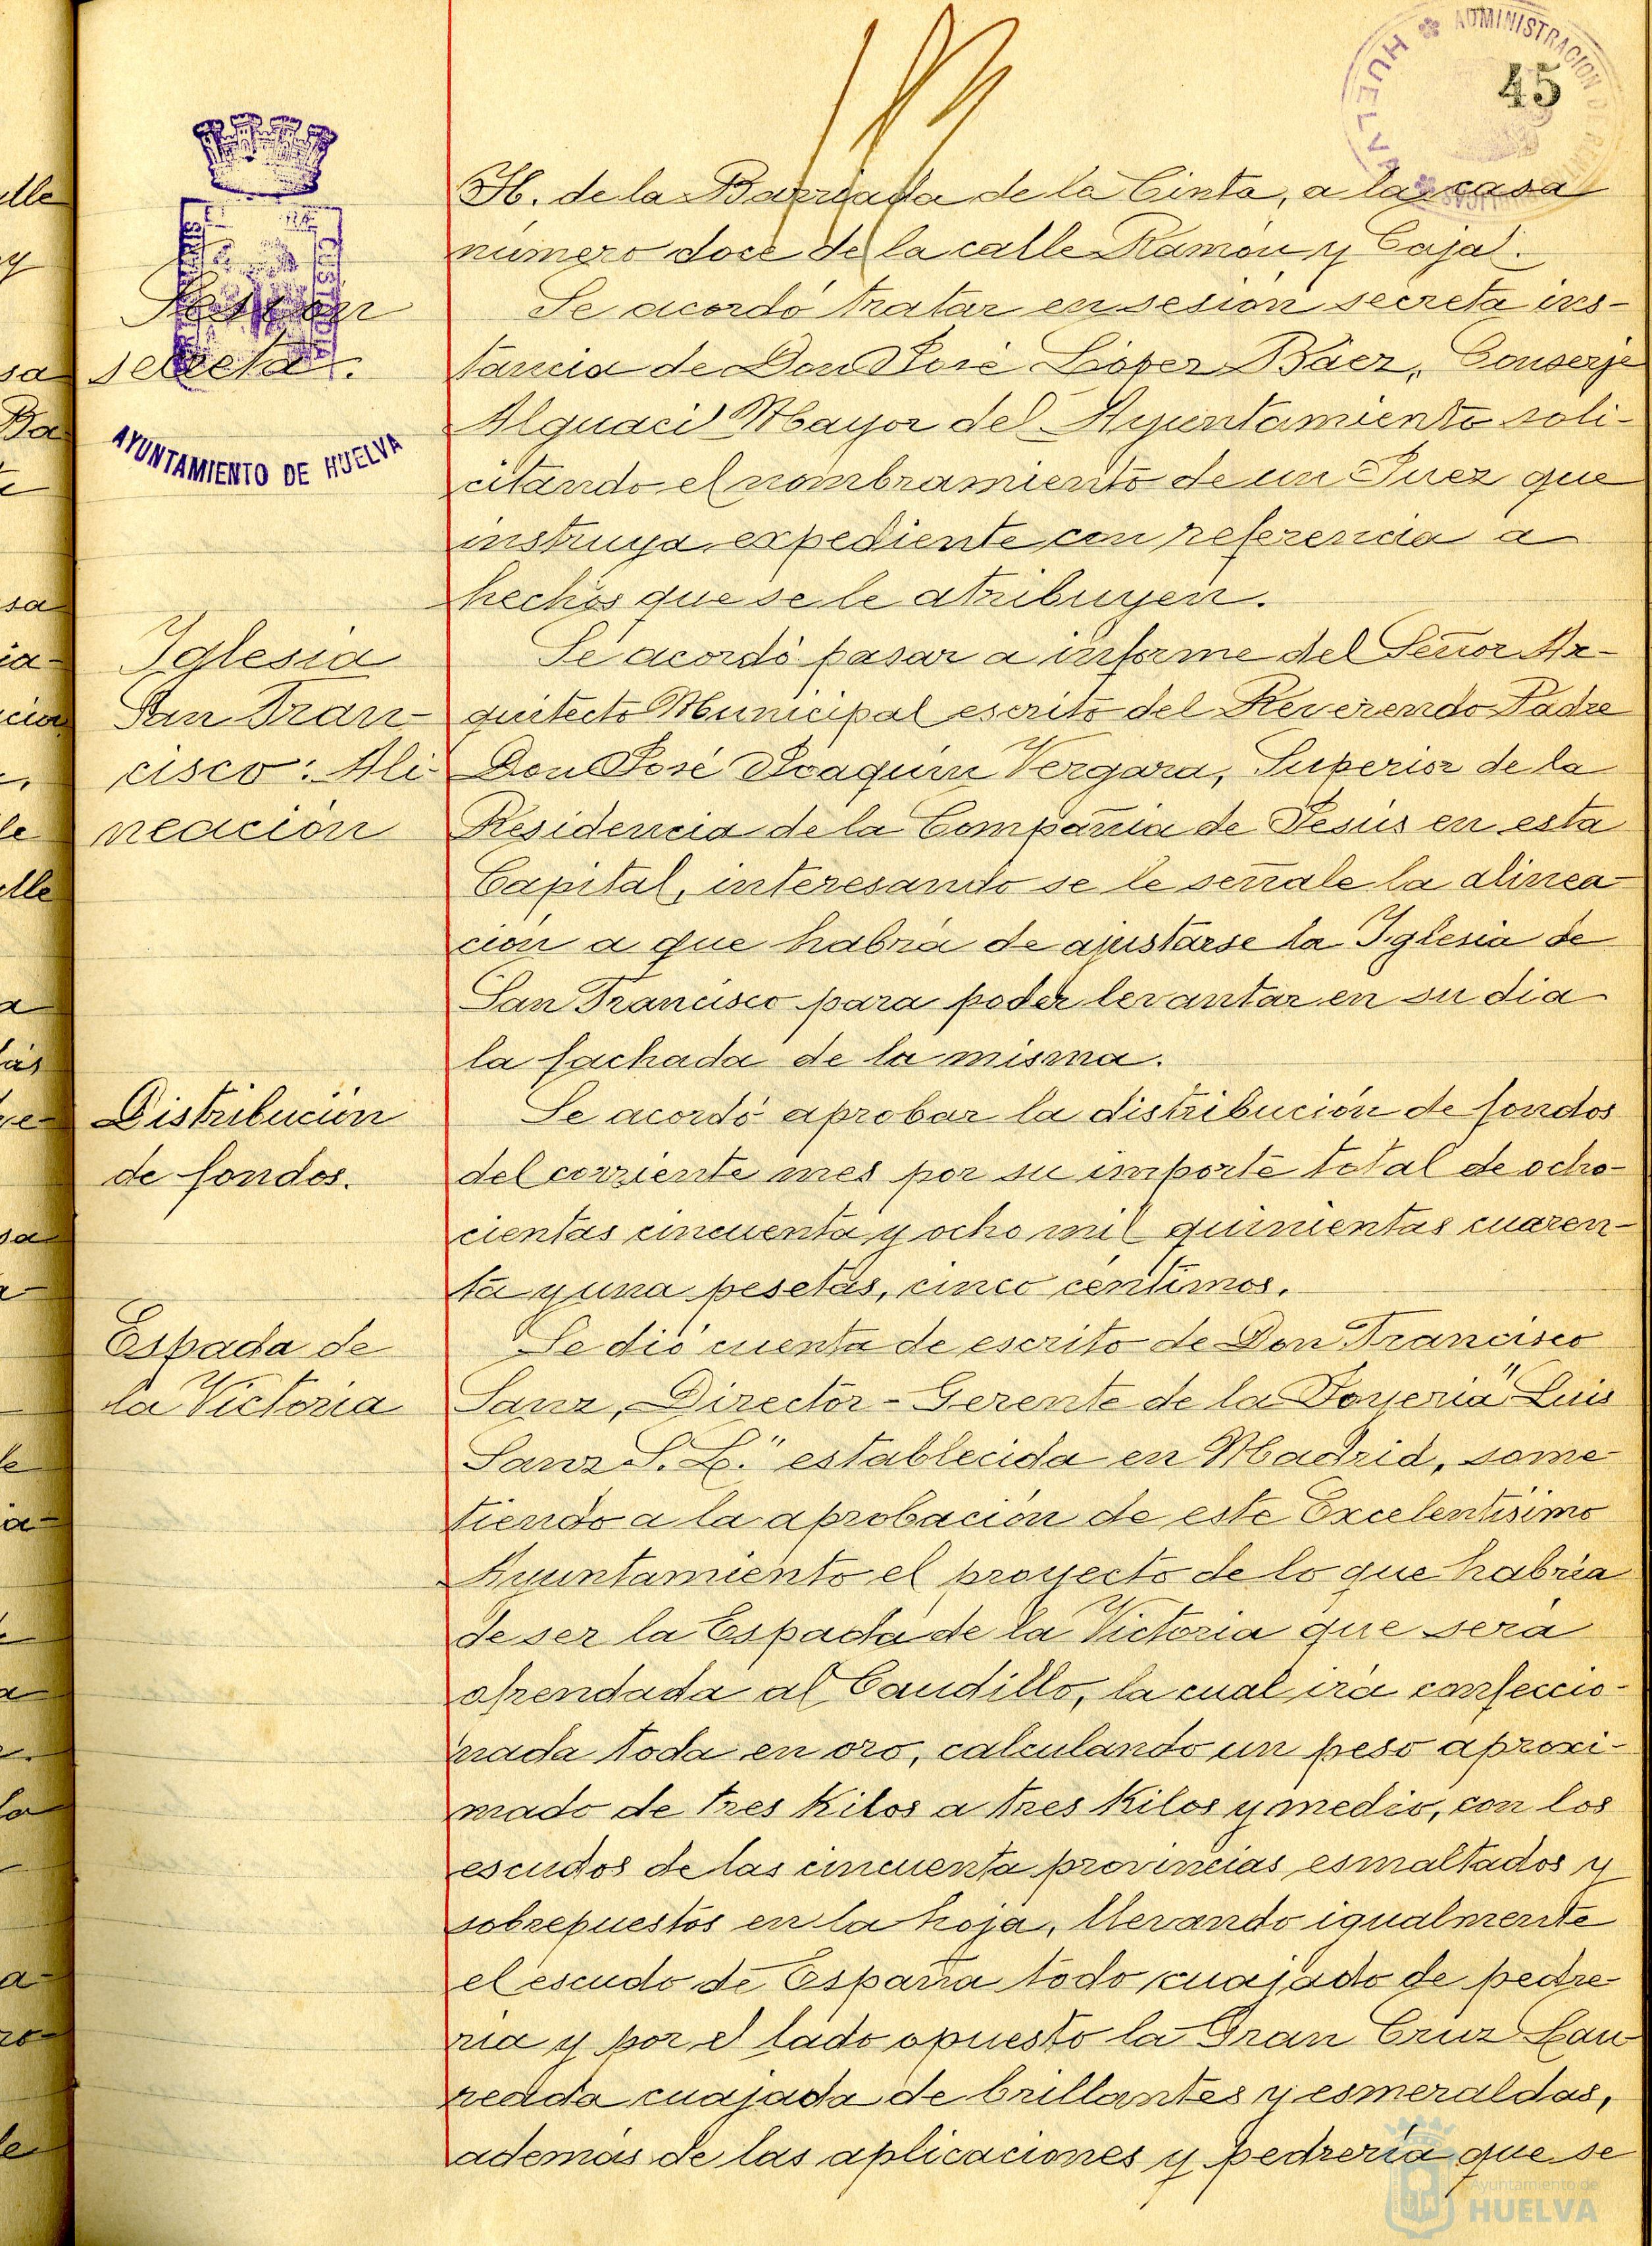 45
ADMINISTRACION
HUELVA
H. de la Barriada de la Cinta, a la casa
número doce de la calle Ramón y Cajal.
Sesion
secreta.
AYUNTAMIENTO DE HUELVA
Se acordó tratar en sesión secreta ins-
tancia de Don José López Báez, Conserje
Alguacil Mayor del Ayuntamiento soli-
citando el nombramiento de un Juez que
instruya expediente con referencia a
hechos que se le atribuyen.
Iglesia
San Fran-
cisco: Ali-
neación
Se acordó pasar a informe del Señor Ar-
quitecto Municipal escrito del Reverendo Padre
Don José Joaquín Vergara, Superior de la
Residencia de la Compañía de Jesús en esta
Capital, interesando se le señale la alinea-
ción a que habrá de ajustarse la Iglesia de
San Francisco para poder levantar en su dia
la fachada de la misma.
Distribución
de fondos.
Se acordó aprobar la distribución de fondos
del corriente mes por su importe total de ocho-
cientas cincuenta y ocho mil quinientas cuaren-
ta y una pesetas, cinco centimos.
Espada de
la Victoria
Se dió cuenta de escrito de Don Francisco
Sanz, Director-Gerente de la Joyería "Luis
Sanz S. L." establecida en Madrid, some-
tiendo a la aprobación de este Excelentísimo
Ayuntamiento el proyecto de lo que habría
de ser la Espada de la Victoria que será
ofrendada al Caudillo, la cual irá confeccio-
nada toda en oro, calculando un peso aproxi-
mado de tres Kilos a tres Kilos y medio, con los
escudos de las cincuenta provincias esmaltados y
sobrepuestos en la hoja, llevando igualmente
el escudo de España todo cuajado de pedre-
ría y por el lado opuesto la Gran Cruz Lau-
reada cuajada de brillantes y esmeraldas,
además de las aplicaciones y pedrería que se
Ayuntamiento de
HUELVA